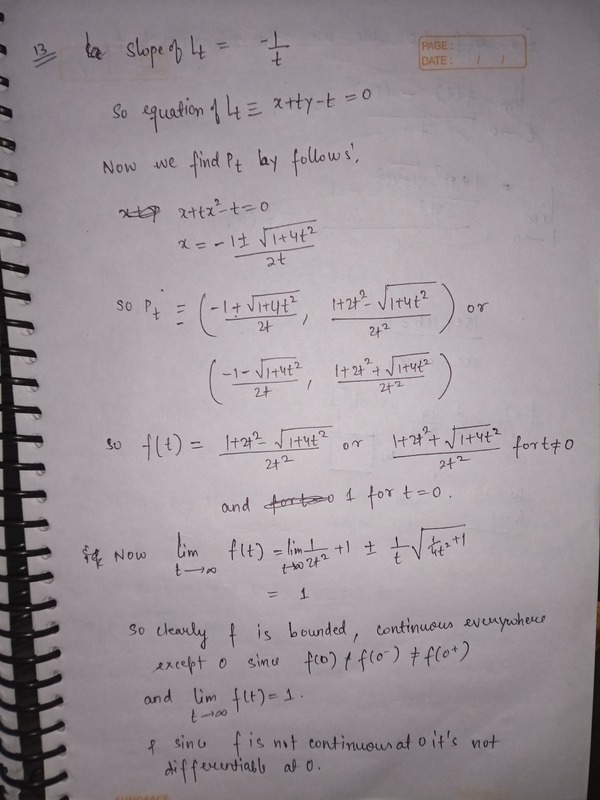 13 Slope of Lt = -1/t
PAGE :
DATE : / /
So equation of Lt ≡ x+ty-t = 0
Now we find Pt by follows',
x+tx²-t=0
x = -1± √(1+4t²) / 2t
so Pt ≡ ( (-1+√(1+4t²))/2t , (1+2t²-√(1+4t²))/2t² ) or
( (-1-√(1+4t²))/2t , (1+2t²+√(1+4t²))/2t² )
so f(t) = (1+2t²-√(1+4t²))/2t² or (1+2t²+√(1+4t²))/2t² for t≠0
and 1 for t=0.
Now lim t→∞ f(t) = lim t→∞ 1/2t² +1 ± 1/t √(1/4t²+1)
= 1
So clearly f is bounded, continuous everywhere
except 0 since f(0) ≠ f(0⁻) ≠ f(0⁺)
and lim t→∞ f(t)=1.
& since f is not continuous at 0 it's not
differentiable at 0.